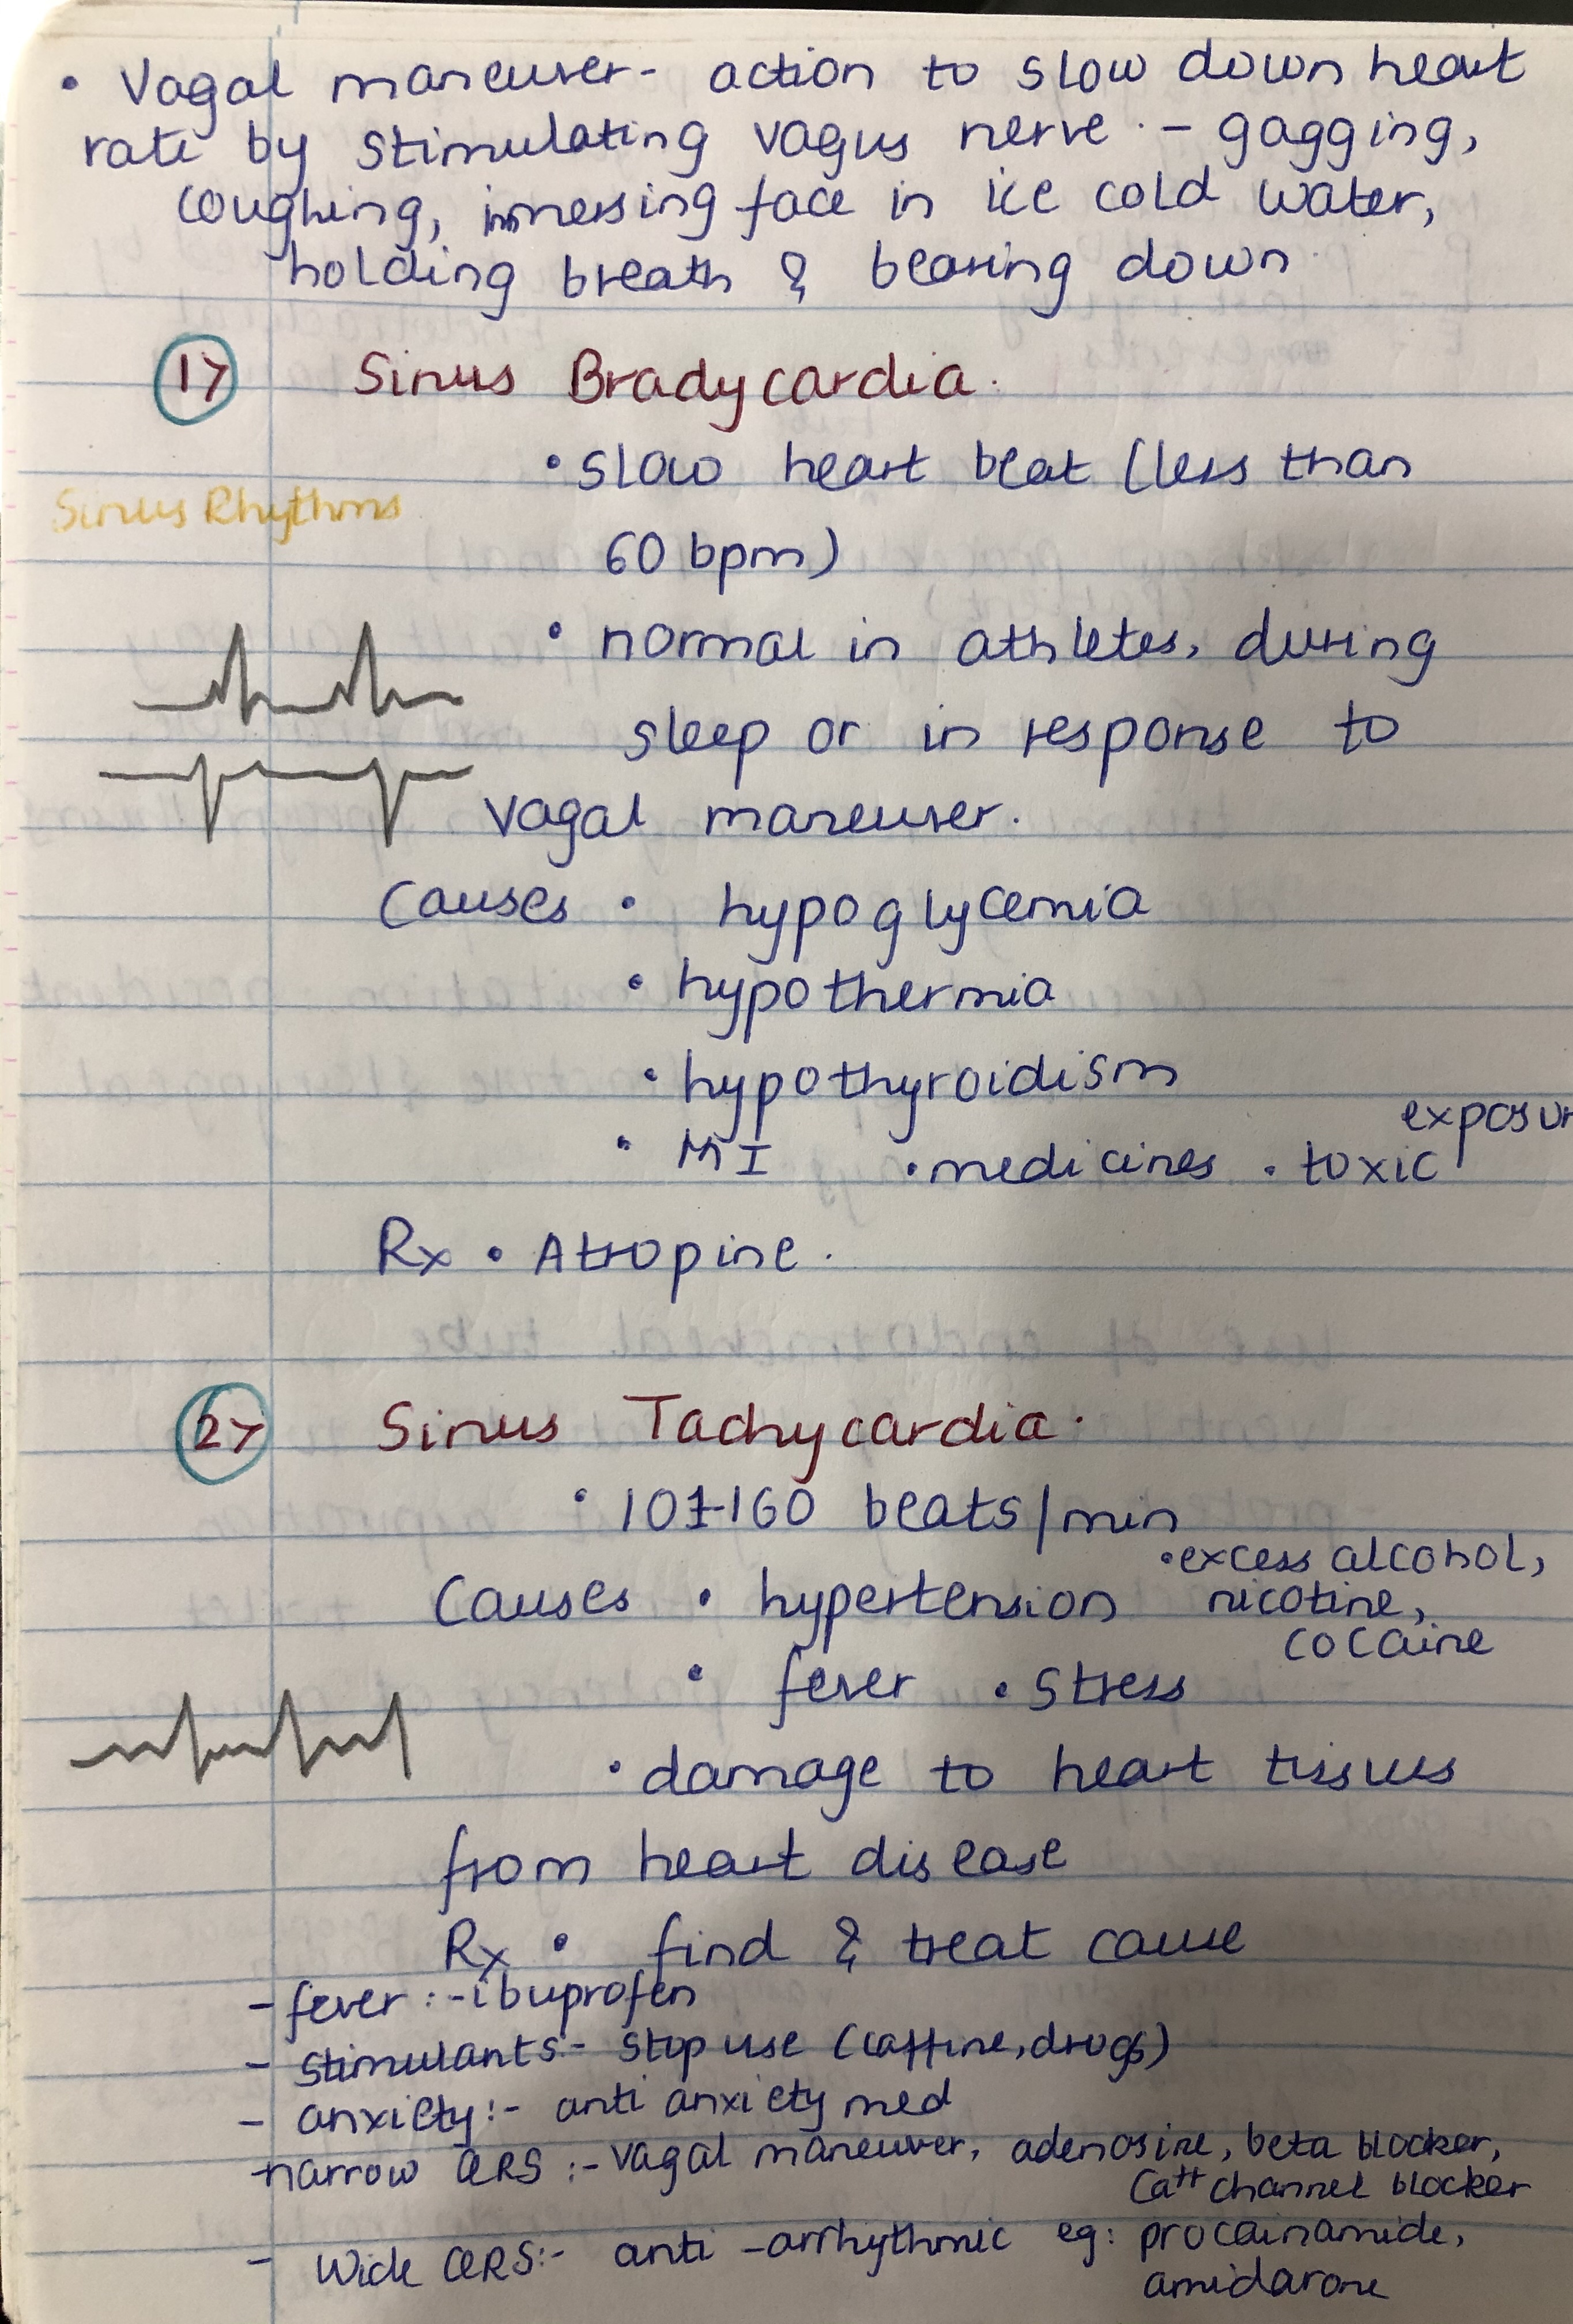 • Vagal maneuver- action to slow down heart
rate by stimulating vagus nerve. - gagging,
coughing, immersing face in ice cold water,
holding breath & bearing down.
1> Sinus Bradycardia.
• slow heart beat (less than
Sinus Rhythms
60 bpm)
• normal in athletes, during
sleep or in response to
vagal maneuver.
Causes • hypoglycemia
• hypothermia
• hypothyroidism
exposur
• MI • medicines • toxic
Rx • Atropine.
2> Sinus Tachycardia.
• 101-160 beats/min
• excess alcohol,
Causes • hypertension nicotine,
cocaine
• fever • stress
• damage to heart tissues
from heart disease
Rx • find & treat cause
- fever :- ibuprofen
- stimulants - stop use (caffine, drugs)
- anxiety :- anti anxiety med
- narrow QRS :- vagal maneuver, adenosine, beta blocker,
Ca++ channel blocker
- Wide QRS :- anti -arrhythmic eg: procainamide,
amidarone